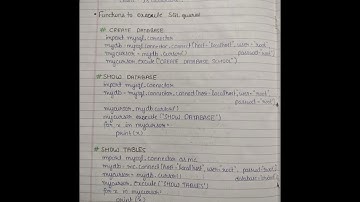 • Functions to execute SQL queries
# CREATE DATABASE
import mysql.connector
mydb = mysql.connector.connect(host="localhost", user="root",
passwd="root")
mycursor = mydb.cursor()
mycursor.execute("CREATE DATABASE SCHOOL")
# SHOW DATABASE
import mysql.connector
mydb = mysql.connector.connect(host="localhost", user="root",
passwd="root")
mycursor = mydb.cursor()
mycursor.execute("SHOW DATABASE")
for x in mycursor:
print(x)
# SHOW TABLES
import mysql.connector as mc
mydb = mc.connect(host="localhost", user="root", passwd="root",
database=
mycursor = mydb.cursor()
mycursor.execute("SHOW TABLES")
for x in mycursor:
print(x)